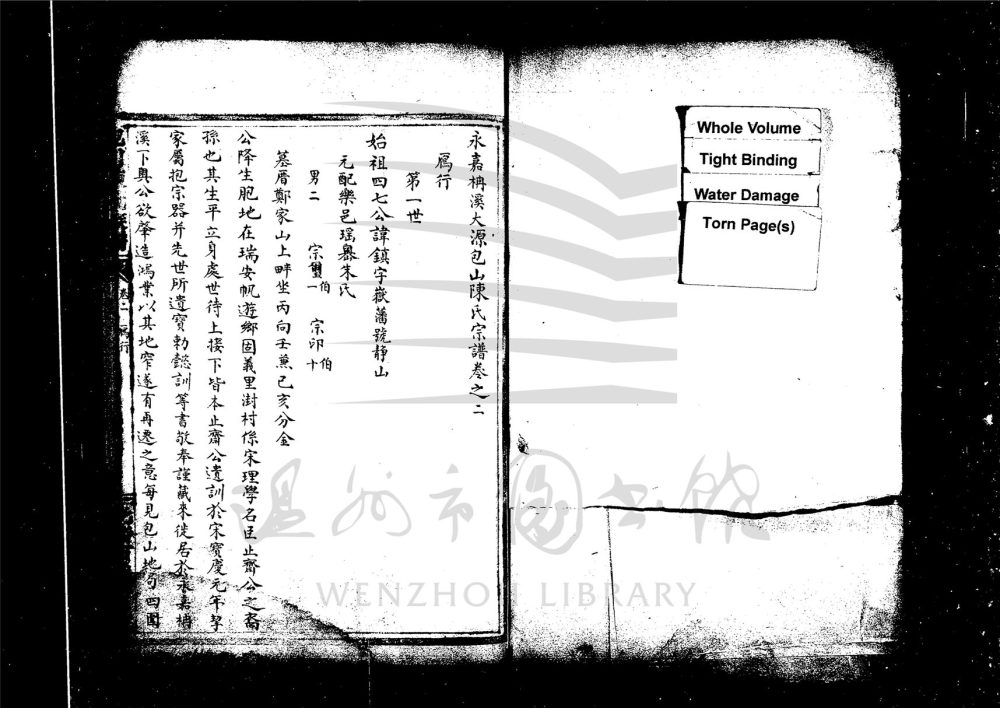 永嘉枬溪大源包山陳氏宗譜卷之二
鳫行
第一世
始祖四七公諱鎮字嶽藩號静山
元配樂邑瑤嶴朱氏
男二 宗璽伯一 宗印伯十
墓厝鄭家山上畔坐丙向壬兼己亥分金
公降生胞地在瑞安帆遊鄉固義里澍村係宋理學名臣止齋公之裔
孫也其生平立身處世待上接下皆本止齋公遺訓於宋寶慶元年挈
家屬抱宗器并先世所遺寶勅懿訓等書敬奉謹藏來徙居於永嘉枬
溪下奧公欲肇造鴻業以其地窄遂有再遷之意每見包山地勻四圍
卷二 鳫行
Whole Volume
Tight Binding
Water Damage
Torn Page(s)
温州市图书馆
WENZHOU LIBRARY